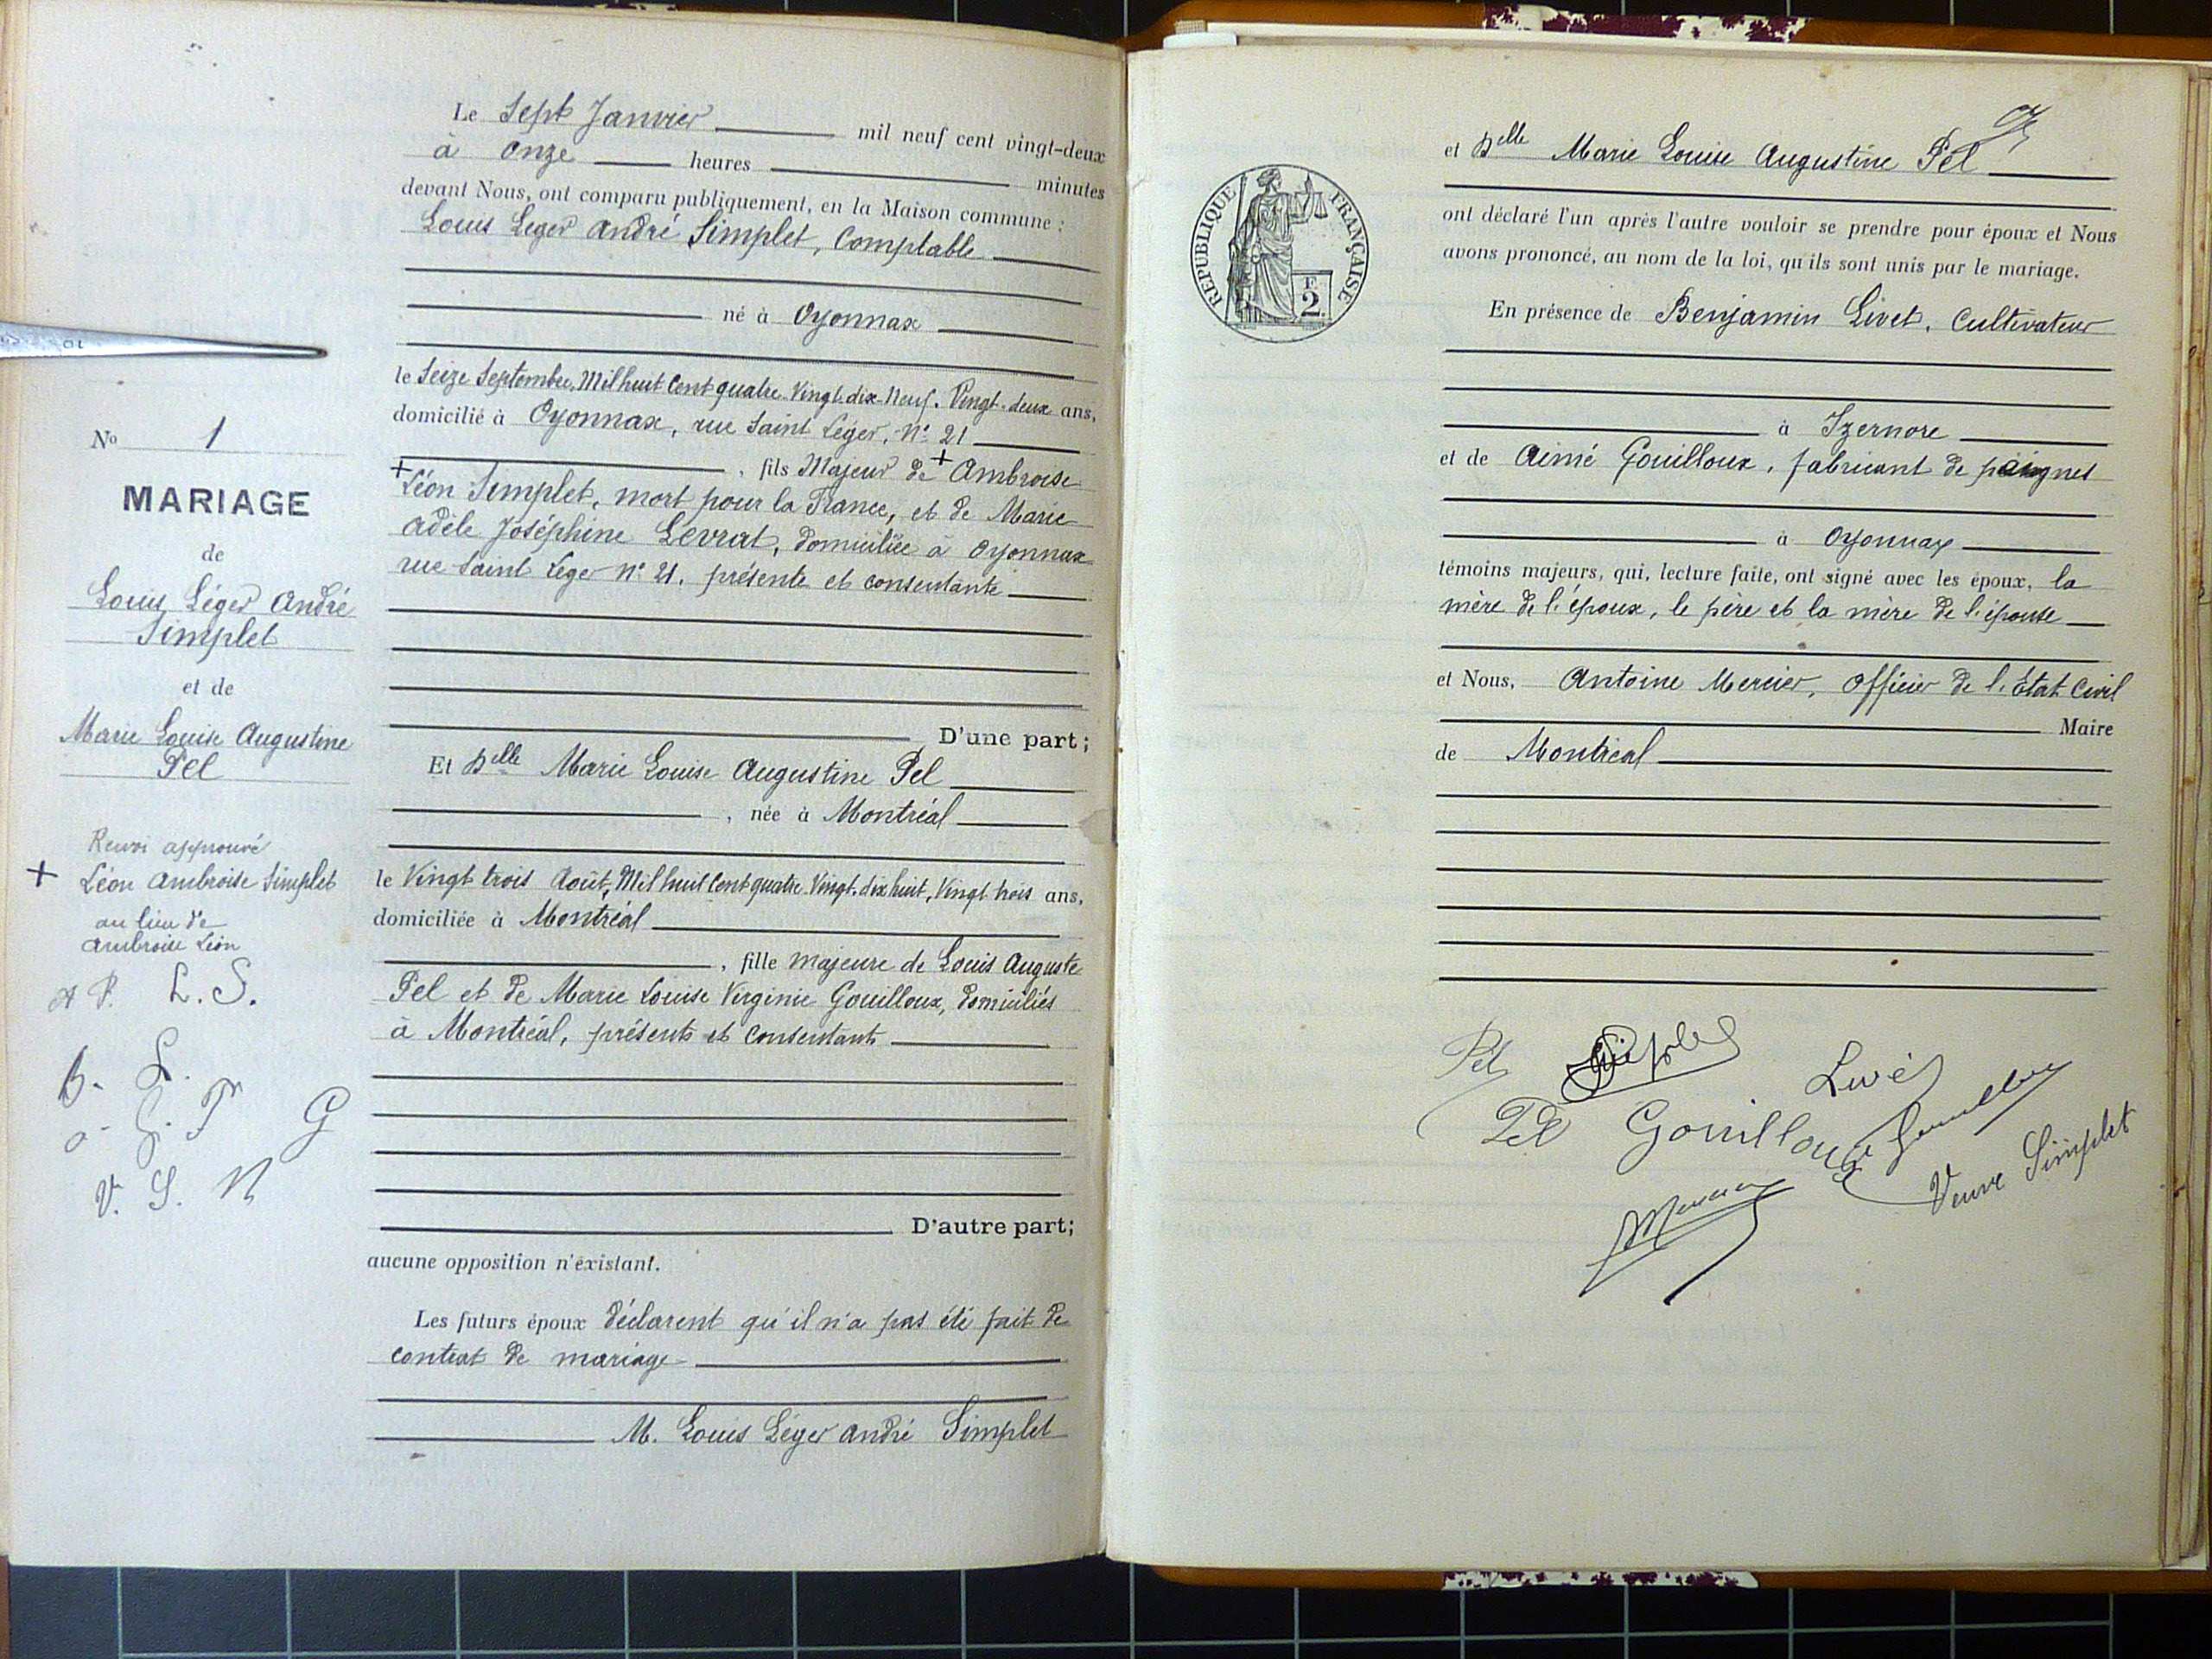 Le Sept Janvier mil neuf cent vingt-deux
à Onze heures minutes
devant Nous, ont comparu publiquement, en la Maison commune :
Louis Leger André Simplet, Comptable
né à Oyonnax
le Seize Septembre, Mil huit Cent quatre Vingt dix Neuf. Vingt-deux ans,
domicilié à Oyonnax, rue Saint Léger, N° 21
, fils Majeur de + Ambroise
+ Léon Simplet, mort pour la France, et de Marie
Adèle Joséphine Levrat, domiciliée à Oyonnax
rue Saint Léger N° 21, présente et consentante
D'une part;
Et Delle Marie Louise Augustine Pel
, née à Montréal
le Vingt trois Août, Mil huit Cent quatre Vingt-dix huit, Vingt trois ans,
domiciliée à Montréal
, fille majeure de Louis Auguste
Pel et de Marie Louise Virginie Gouilloux, domiciliés
à Montréal, présents et consentants
D'autre part;
aucune opposition n'existant.
Les futurs époux déclarent qu'il n'a pas été fait de
contrat de mariage
M. Louis Léger André Simplet
No 1
MARIAGE
de
Louis Léger André
Simplet
et de
Marie Louise Augustine
Pel
Renvoi approuvé
+ Léon Ambroise Simplet
au lieu de
Ambroise Léon
A P. L. S.
B. L.
G
V. S. M
REPUBLIQUE FRANÇAISE
F
2
et Delle Marie Louise Augustine Pel
ont déclaré l'un après l'autre vouloir se prendre pour époux et Nous
avons prononcé, au nom de la loi, qu'ils sont unis par le mariage.
En présence de Benjamin Livet, Cultivateur
à Izernore
et de Aimé Gouilloux, fabricant de peignes
à Oyonnax
témoins majeurs, qui, lecture faite, ont signé avec les époux, la
mère de l'époux, le père et la mère de l'épouse
et Nous, Antoine Mercier, Officier de l'Etat Civil
Maire
de Montréal
Pel Simplet Livet
Pel Gouilloux Gouilloux
Veuve Simplet
Mercier